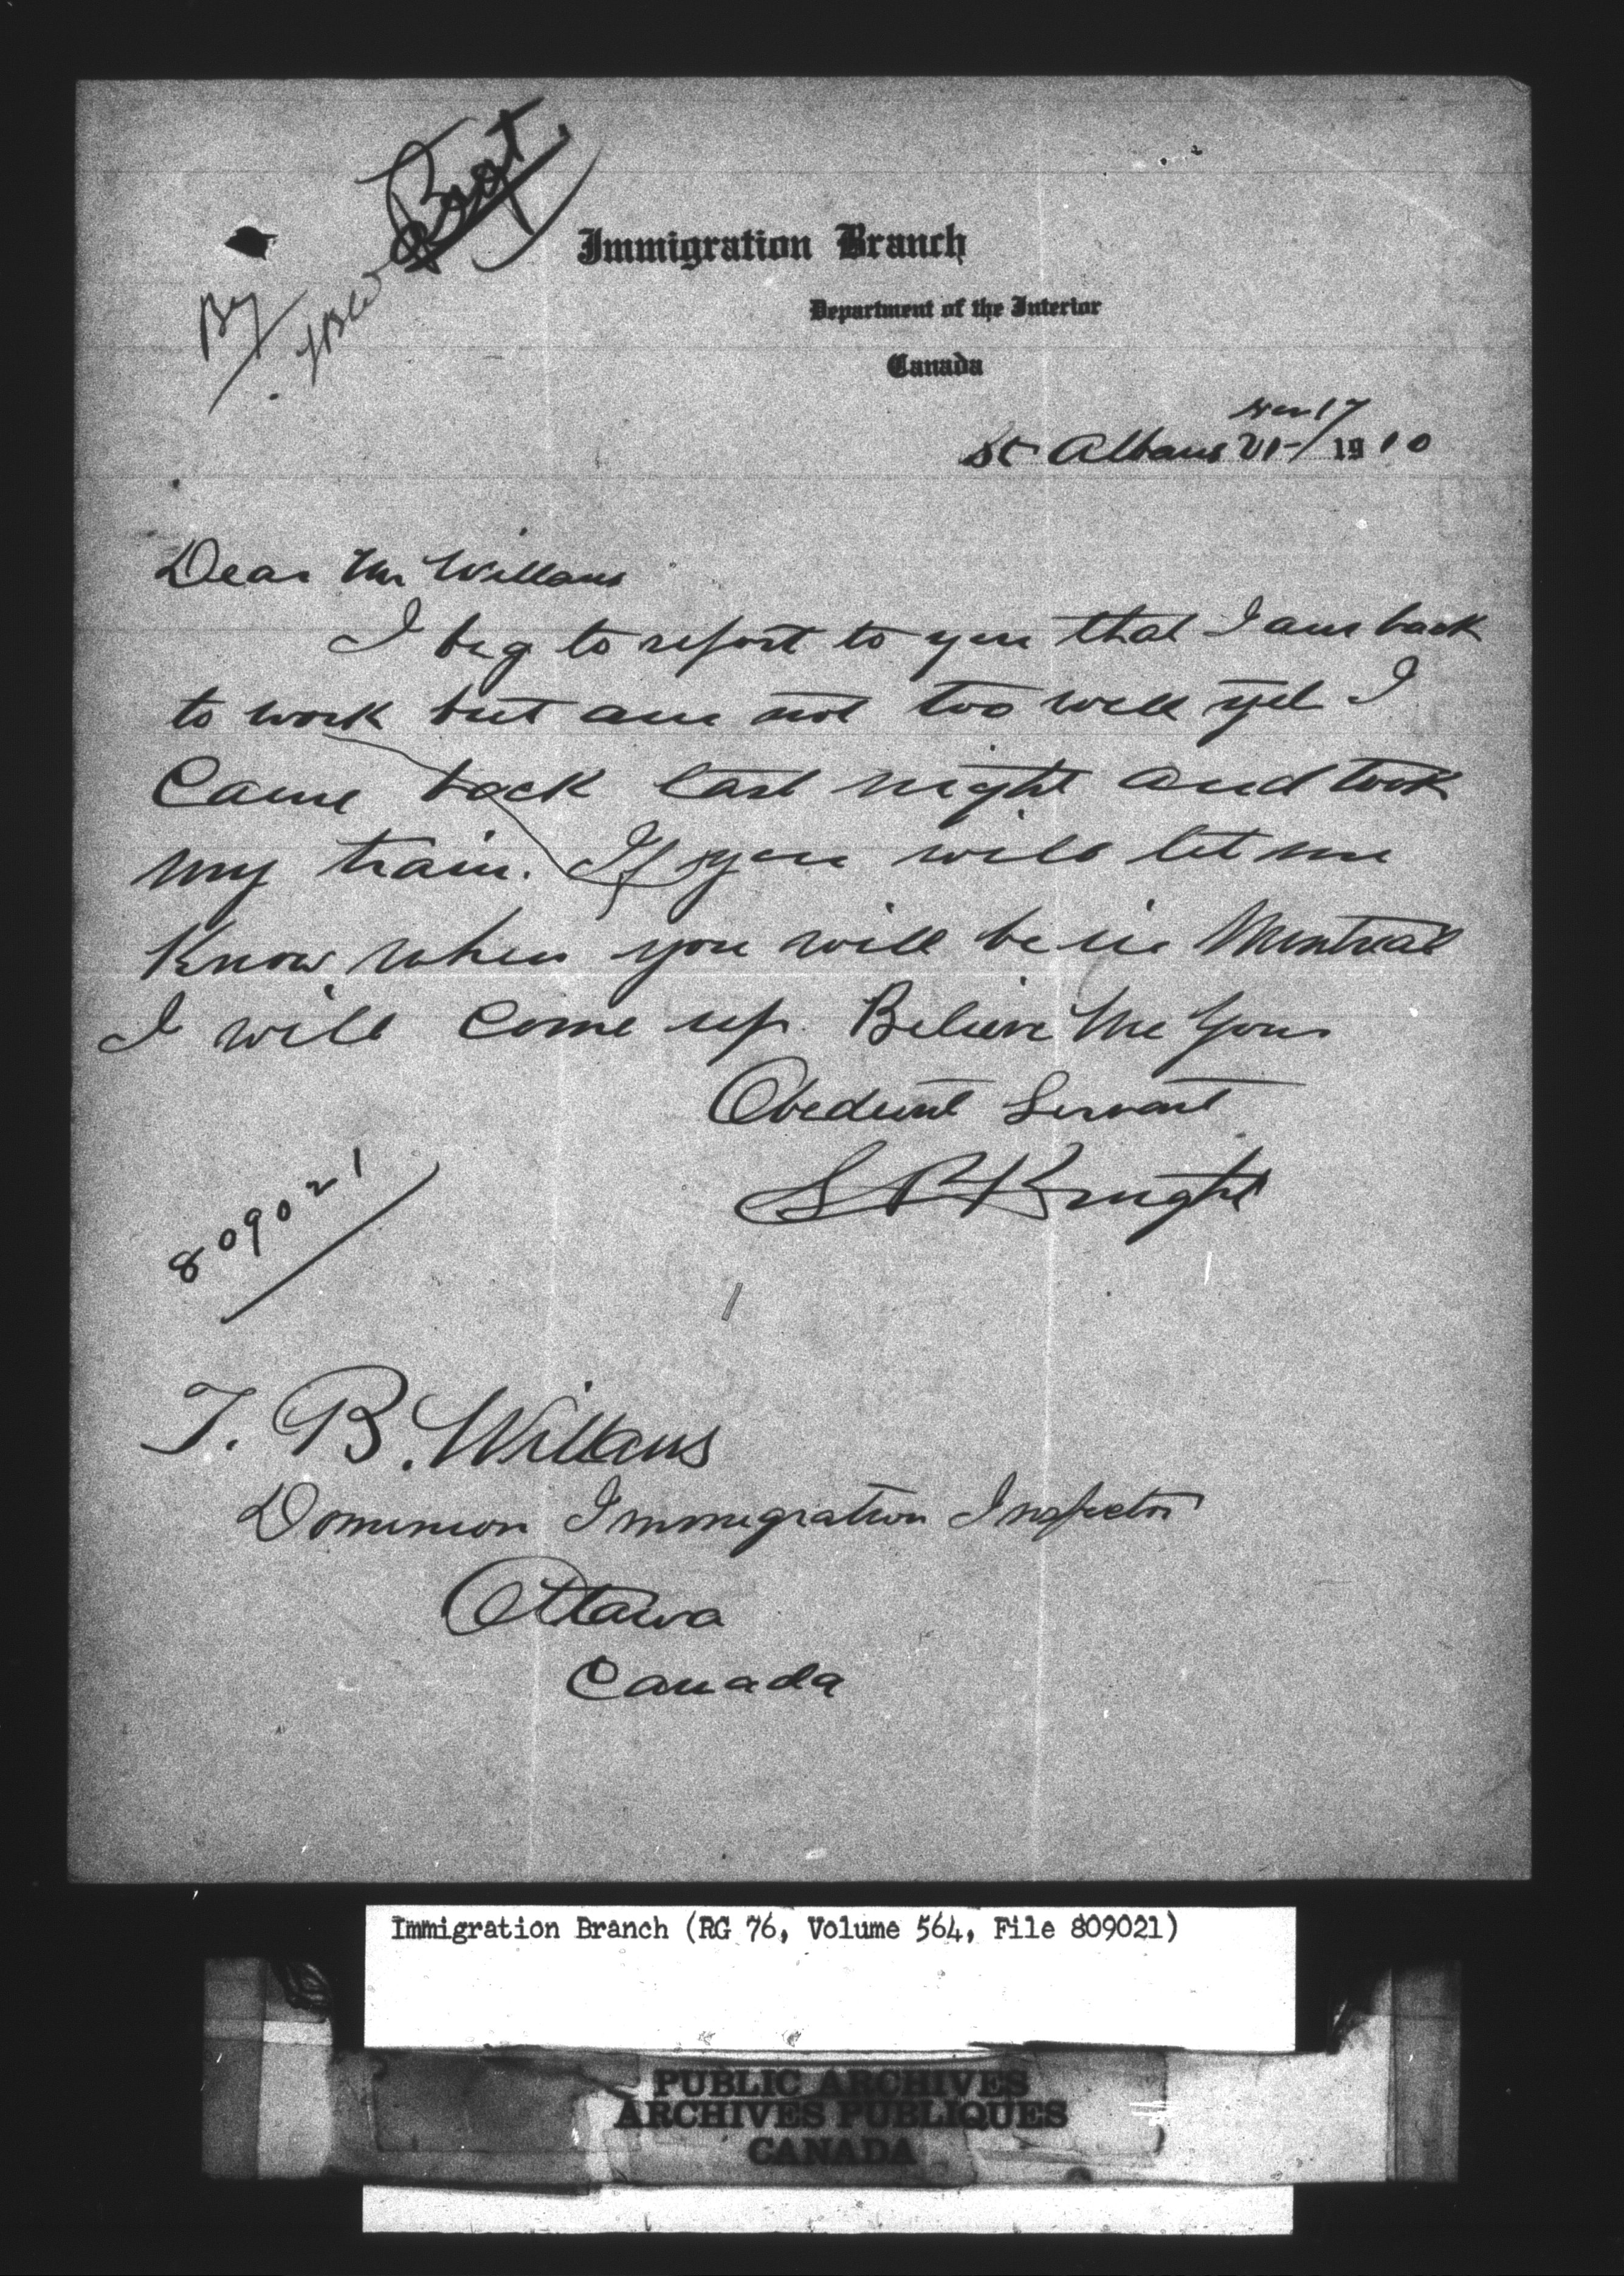 By
Immigration Branch
Department of the Interior
Canada
17
St Albans Vt 1910
Dear Mr Willans
I beg to report to you that I am back
to work but am not too well yet I
Came back last night and took
my train. If you will let me
Know when you will be in Montreal
I will Come up. Believe Me Your
Obedient Servant
S R Knight
809021
T. B. Willans
Dominion Immigration Inspector
Ottawa
Canada
Immigration Branch (RG 76, Volume 564, File 809021)
PUBLIC ARCHIVES
ARCHIVES PUBLIQUES
CANADA